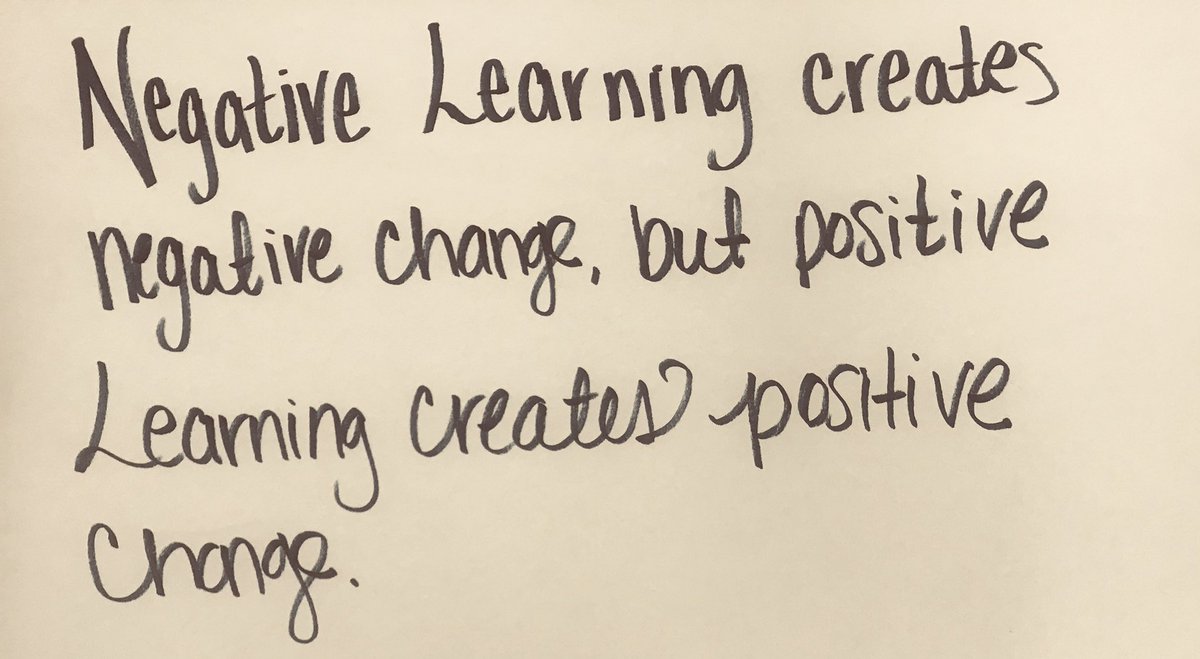 Negative Learning creates
negative change, but positive
Learning creates positive
Change.